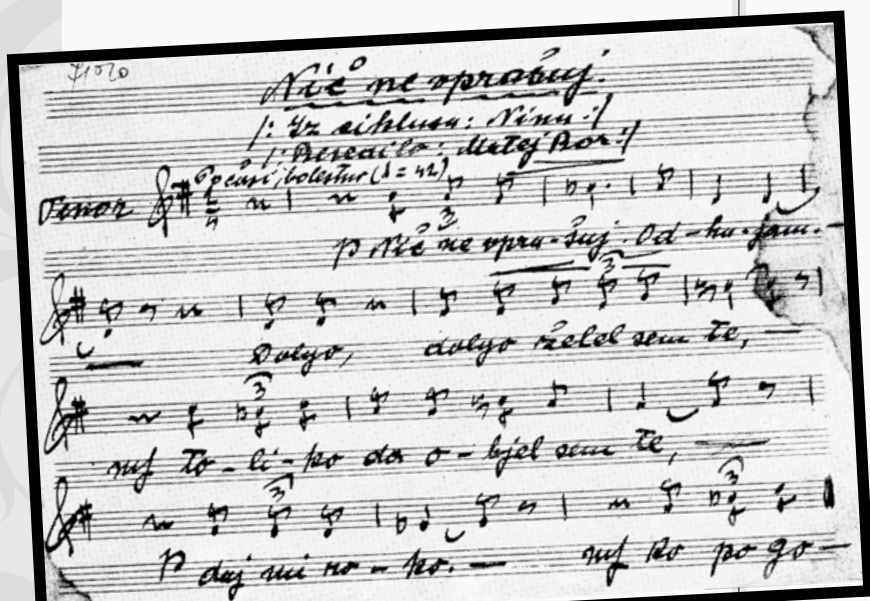 Nič ne vprašuj.
/: Iz ciklusa: Ninu :/
/: Besedilo: Matej Bor :/
Počasi, bolestno (♩ = 42)
Tenor
3
p Nič ne vpra-šuj. Od-ha-jam.
3
Dolgo, dolgo želel sem te,
3
naj to-li-ko da o-bjel sem te,
3 3
p daj mi ro-ko. naj ko po go-